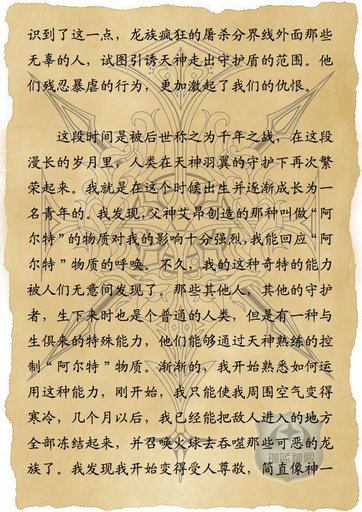 识到了这一点，龙族疯狂的屠杀分界线外面那些
无辜的人，试图引诱天神走出守护盾的范围。他
们残忍暴虐的行为，更加激起了我们的仇恨。
这段时间是被后世称之为千年之战，在这段
漫长的岁月里，人类在天神羽翼的守护下再次繁
荣起来。我就是在这个时候出生并逐渐成长为一
名青年的。我发现，父神艾昂创造的那种叫做“阿
尔特”的物质对我的影响十分强烈，我能回应“阿
尔特”物质的呼唤。不久，我的这种奇特的能力
被人们无意间发现了，那些其他人，其他的守护
者，生下来时也是个普通的人类，但是有一种与
生俱来的特殊能力，他们能够通过天神熟练的控
制“阿尔特”物质。渐渐的，我开始熟悉如何运
用这种能力，刚开始，我只能使我周围空气变得
寒冷，几个月以后，我已经能把敌人进入的地方
全部冻结起来，并召唤火球去吞噬那些可恶的龙
族了。我发现我开始变得受人尊敬，简直像神一